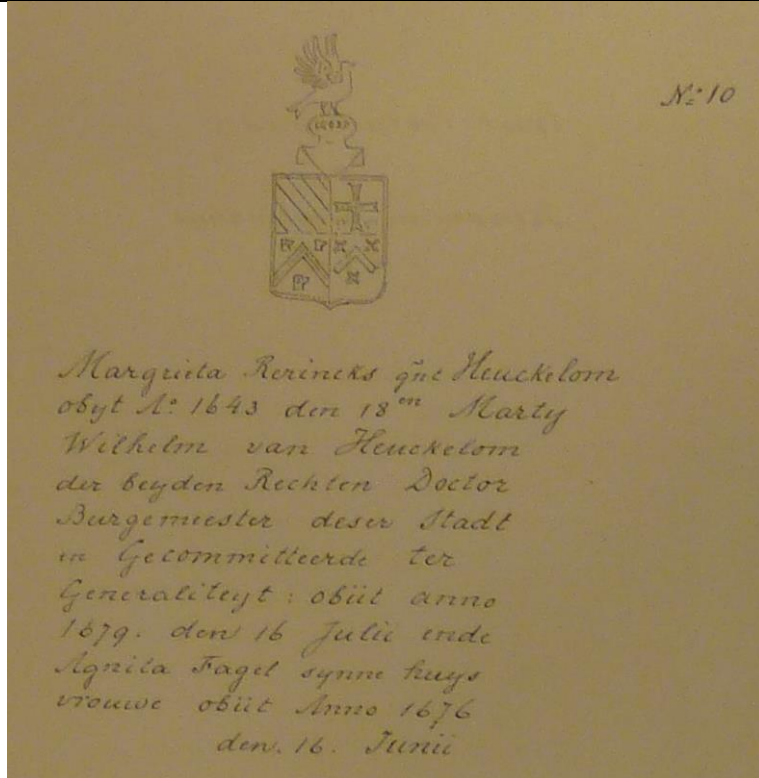 No: 10
Margrieta Rerincks gñt Heuckelom
obyt Ao 1643 den 18en Marty
Wilhelm van Heuckelom
der beyden Rechten Doctor
Burgemeester deser Stadt
en Gecommitteerde ter
Generaliteyt: obiit anno
1679. den 16 Julii ende
Agnita Fagel synne huys
vrouwe obiit Anno 1676
den. 16. Junii